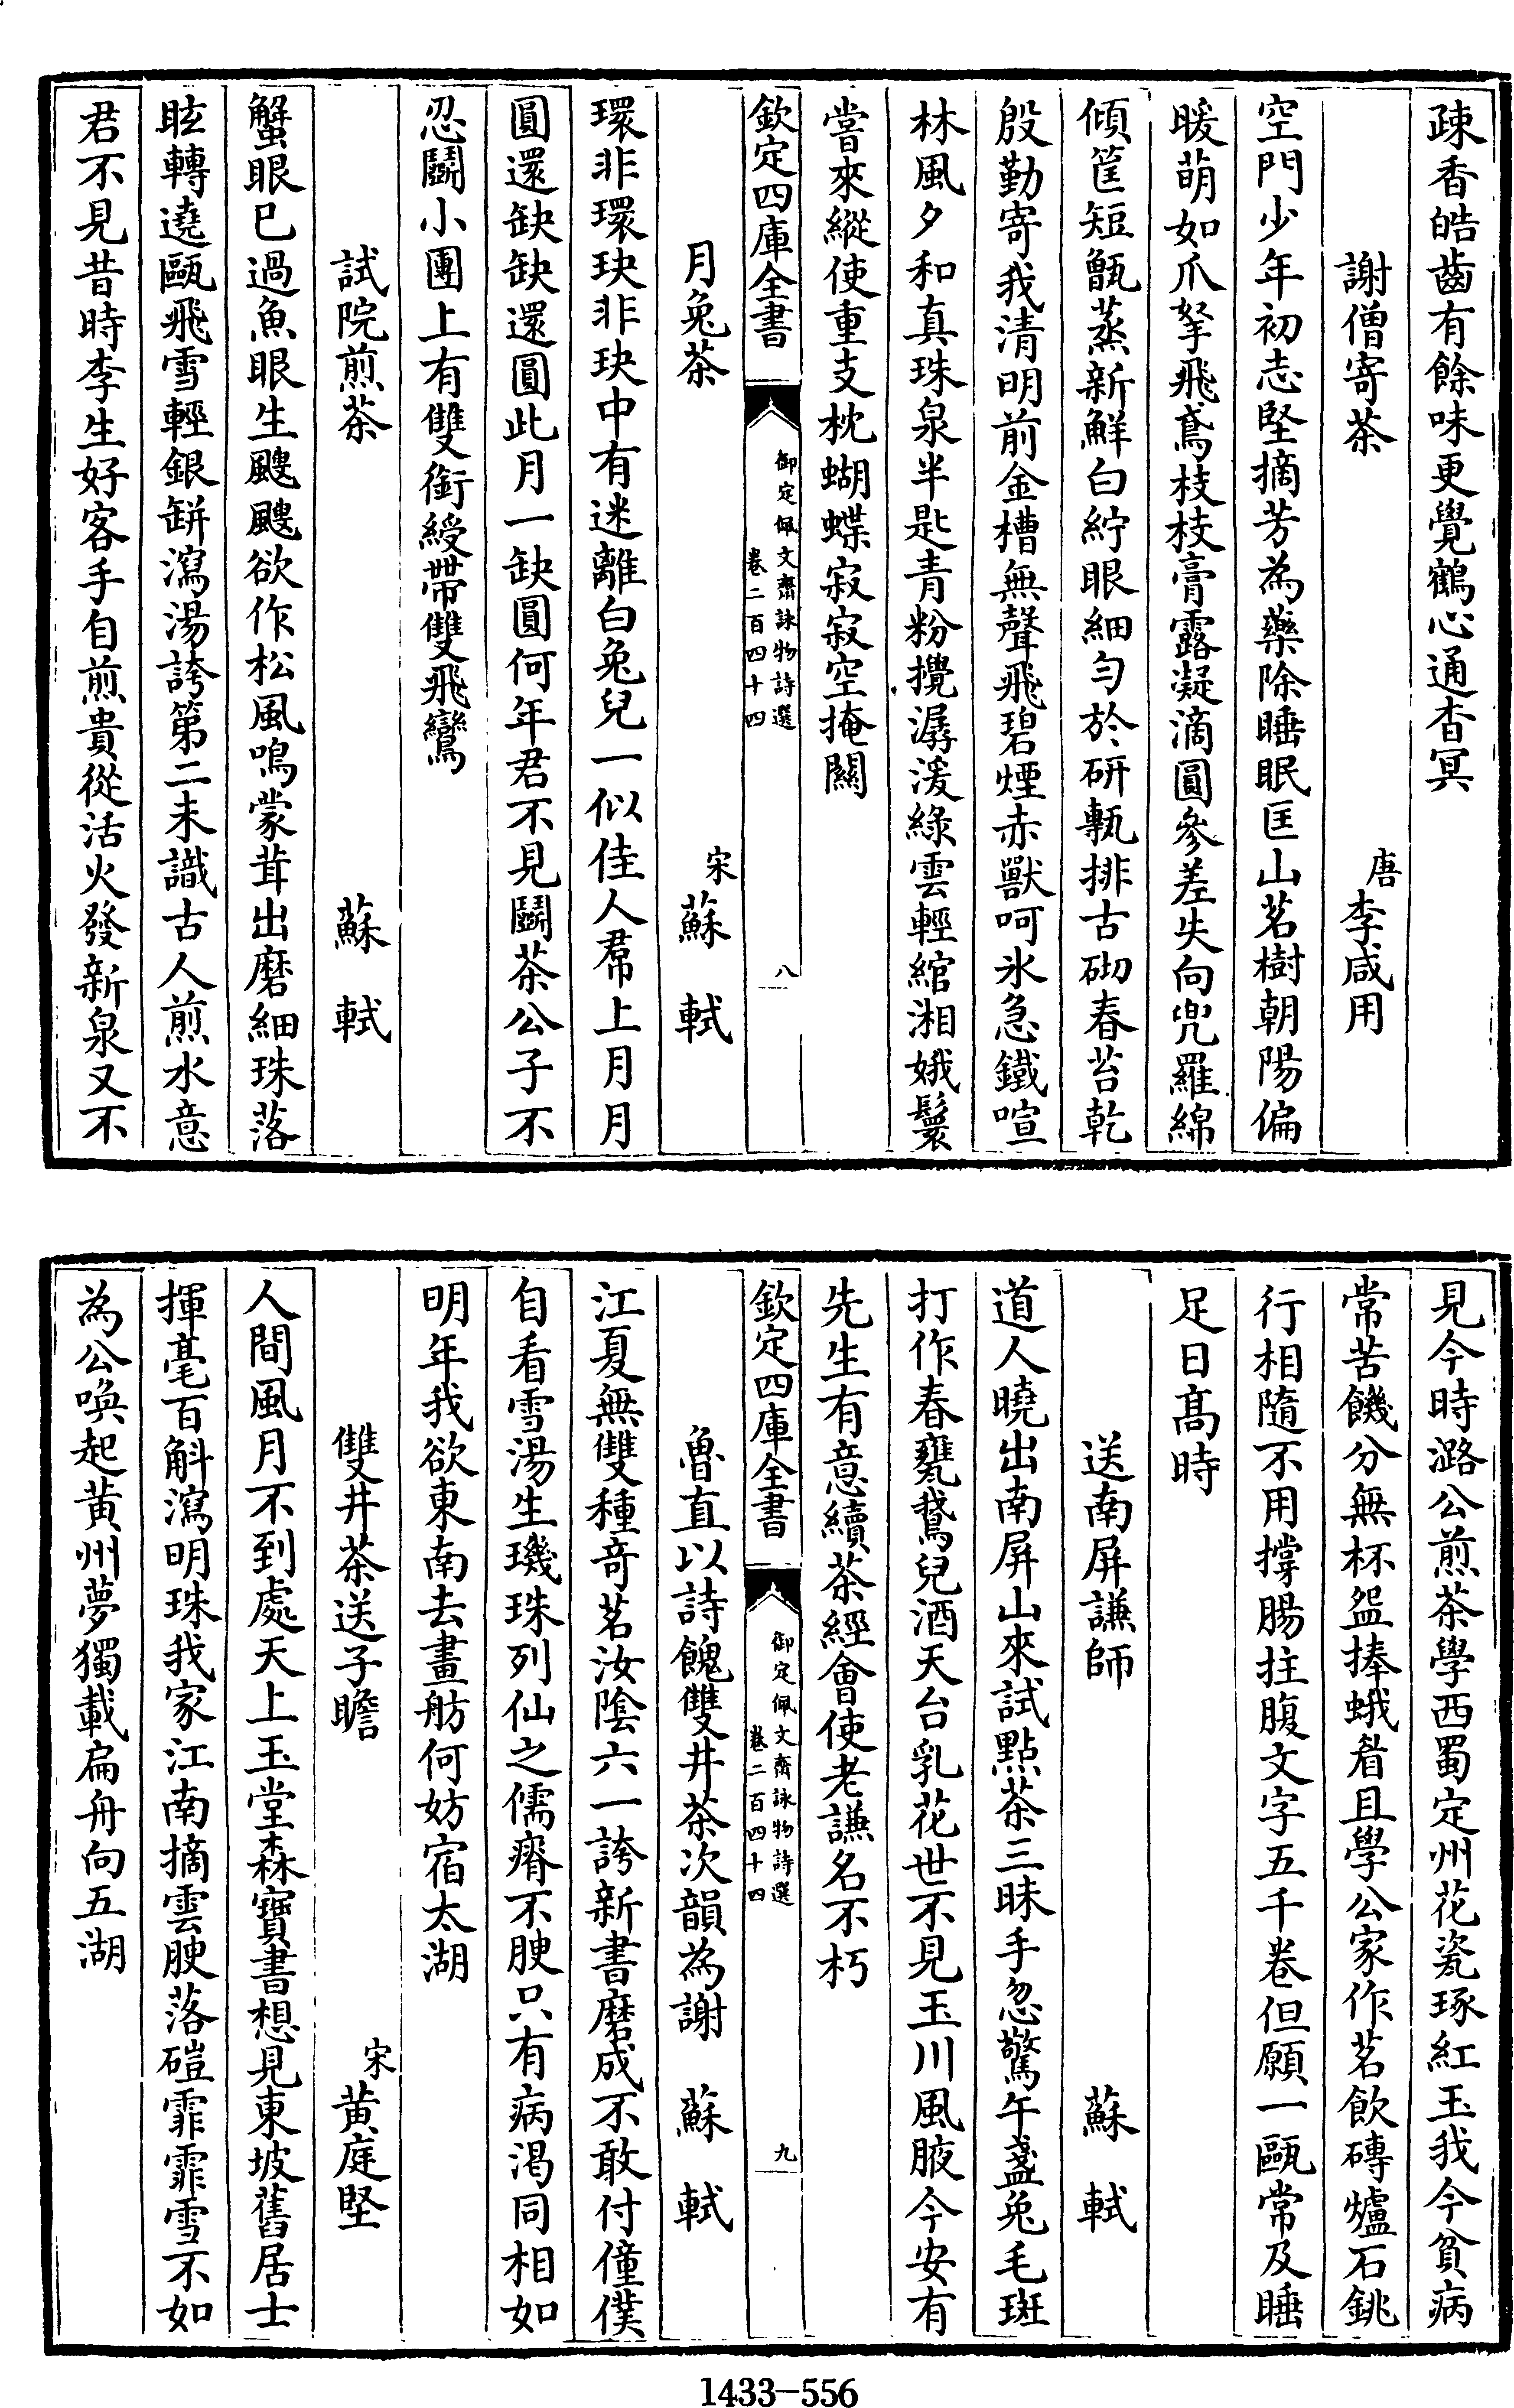 疎香皓齒有餘味更覺鶴心通杳冥
謝僧寄茶
唐李咸用
空門少年初志堅摘芳為藥除睡眠匡山茗樹朝陽偏
暖萌如爪拏飛鳶枝枝膏露凝滴圓參差失向兜羅綿
傾筐短甑蒸新鮮白紵眼細勻於研甎排古砌春苔乾
殷勤寄我清明前金槽無聲飛碧煙赤獸呵氷急鐵喧
林風夕和真珠泉半匙青粉攪潺湲綠雲輕綰湘娥鬟
嘗來縱使重支枕蝴蝶寂寂空掩關
欽定四庫全書
御定佩文齋詠物詩選
卷二百四十四
八
月兔茶
宋蘇軾
環非環玦非玦中有迷離白兔兒一似佳人帬上月月
圓還缺缺還圓此月一缺圓何年君不見鬭茶公子不
忍鬭小團上有雙銜綬帶雙飛鸞
試院煎茶
蘇軾
蟹眼已過魚眼生颼颼欲作松風鳴蒙茸出磨細珠落
眩轉遶甌飛雪輕銀缾瀉湯誇第二未識古人煎水意
君不見昔時李生好客手自煎貴從活火發新泉又不
見今時潞公煎茶學西蜀定州花瓷琢紅玉我今貧病
常苦饑分無杯盌捧蛾眉且學公家作茗飲磚爐石銚
行相隨不用撐腸拄腹文字五千卷但願一甌常及睡
足日髙時
送南屏謙師
蘇軾
道人曉出南屏山來試點茶三昧手忽驚午盞兔毛斑
打作春甕鵞兒酒天台乳花世不見玉川風腋今安有
先生有意續茶經會使老謙名不朽
欽定四庫全書
御定佩文齋詠物詩選
卷二百四十四
九
魯直以詩餽雙井茶次韻為謝
蘇軾
江夏無雙種竒茗汝陰六一誇新書磨成不敢付僮僕
自看雪湯生璣珠列仙之儒瘠不腴只有病渴同相如
明年我欲東南去畫舫何妨宿太湖
雙井茶送子瞻
宋黄庭堅
人間風月不到處天上玉堂森寶書想見東坡舊居士
揮毫百斛瀉明珠我家江南摘雲腴落磑霏霏雪不如
為公喚起黄州夢獨載扁舟向五湖
1433-556